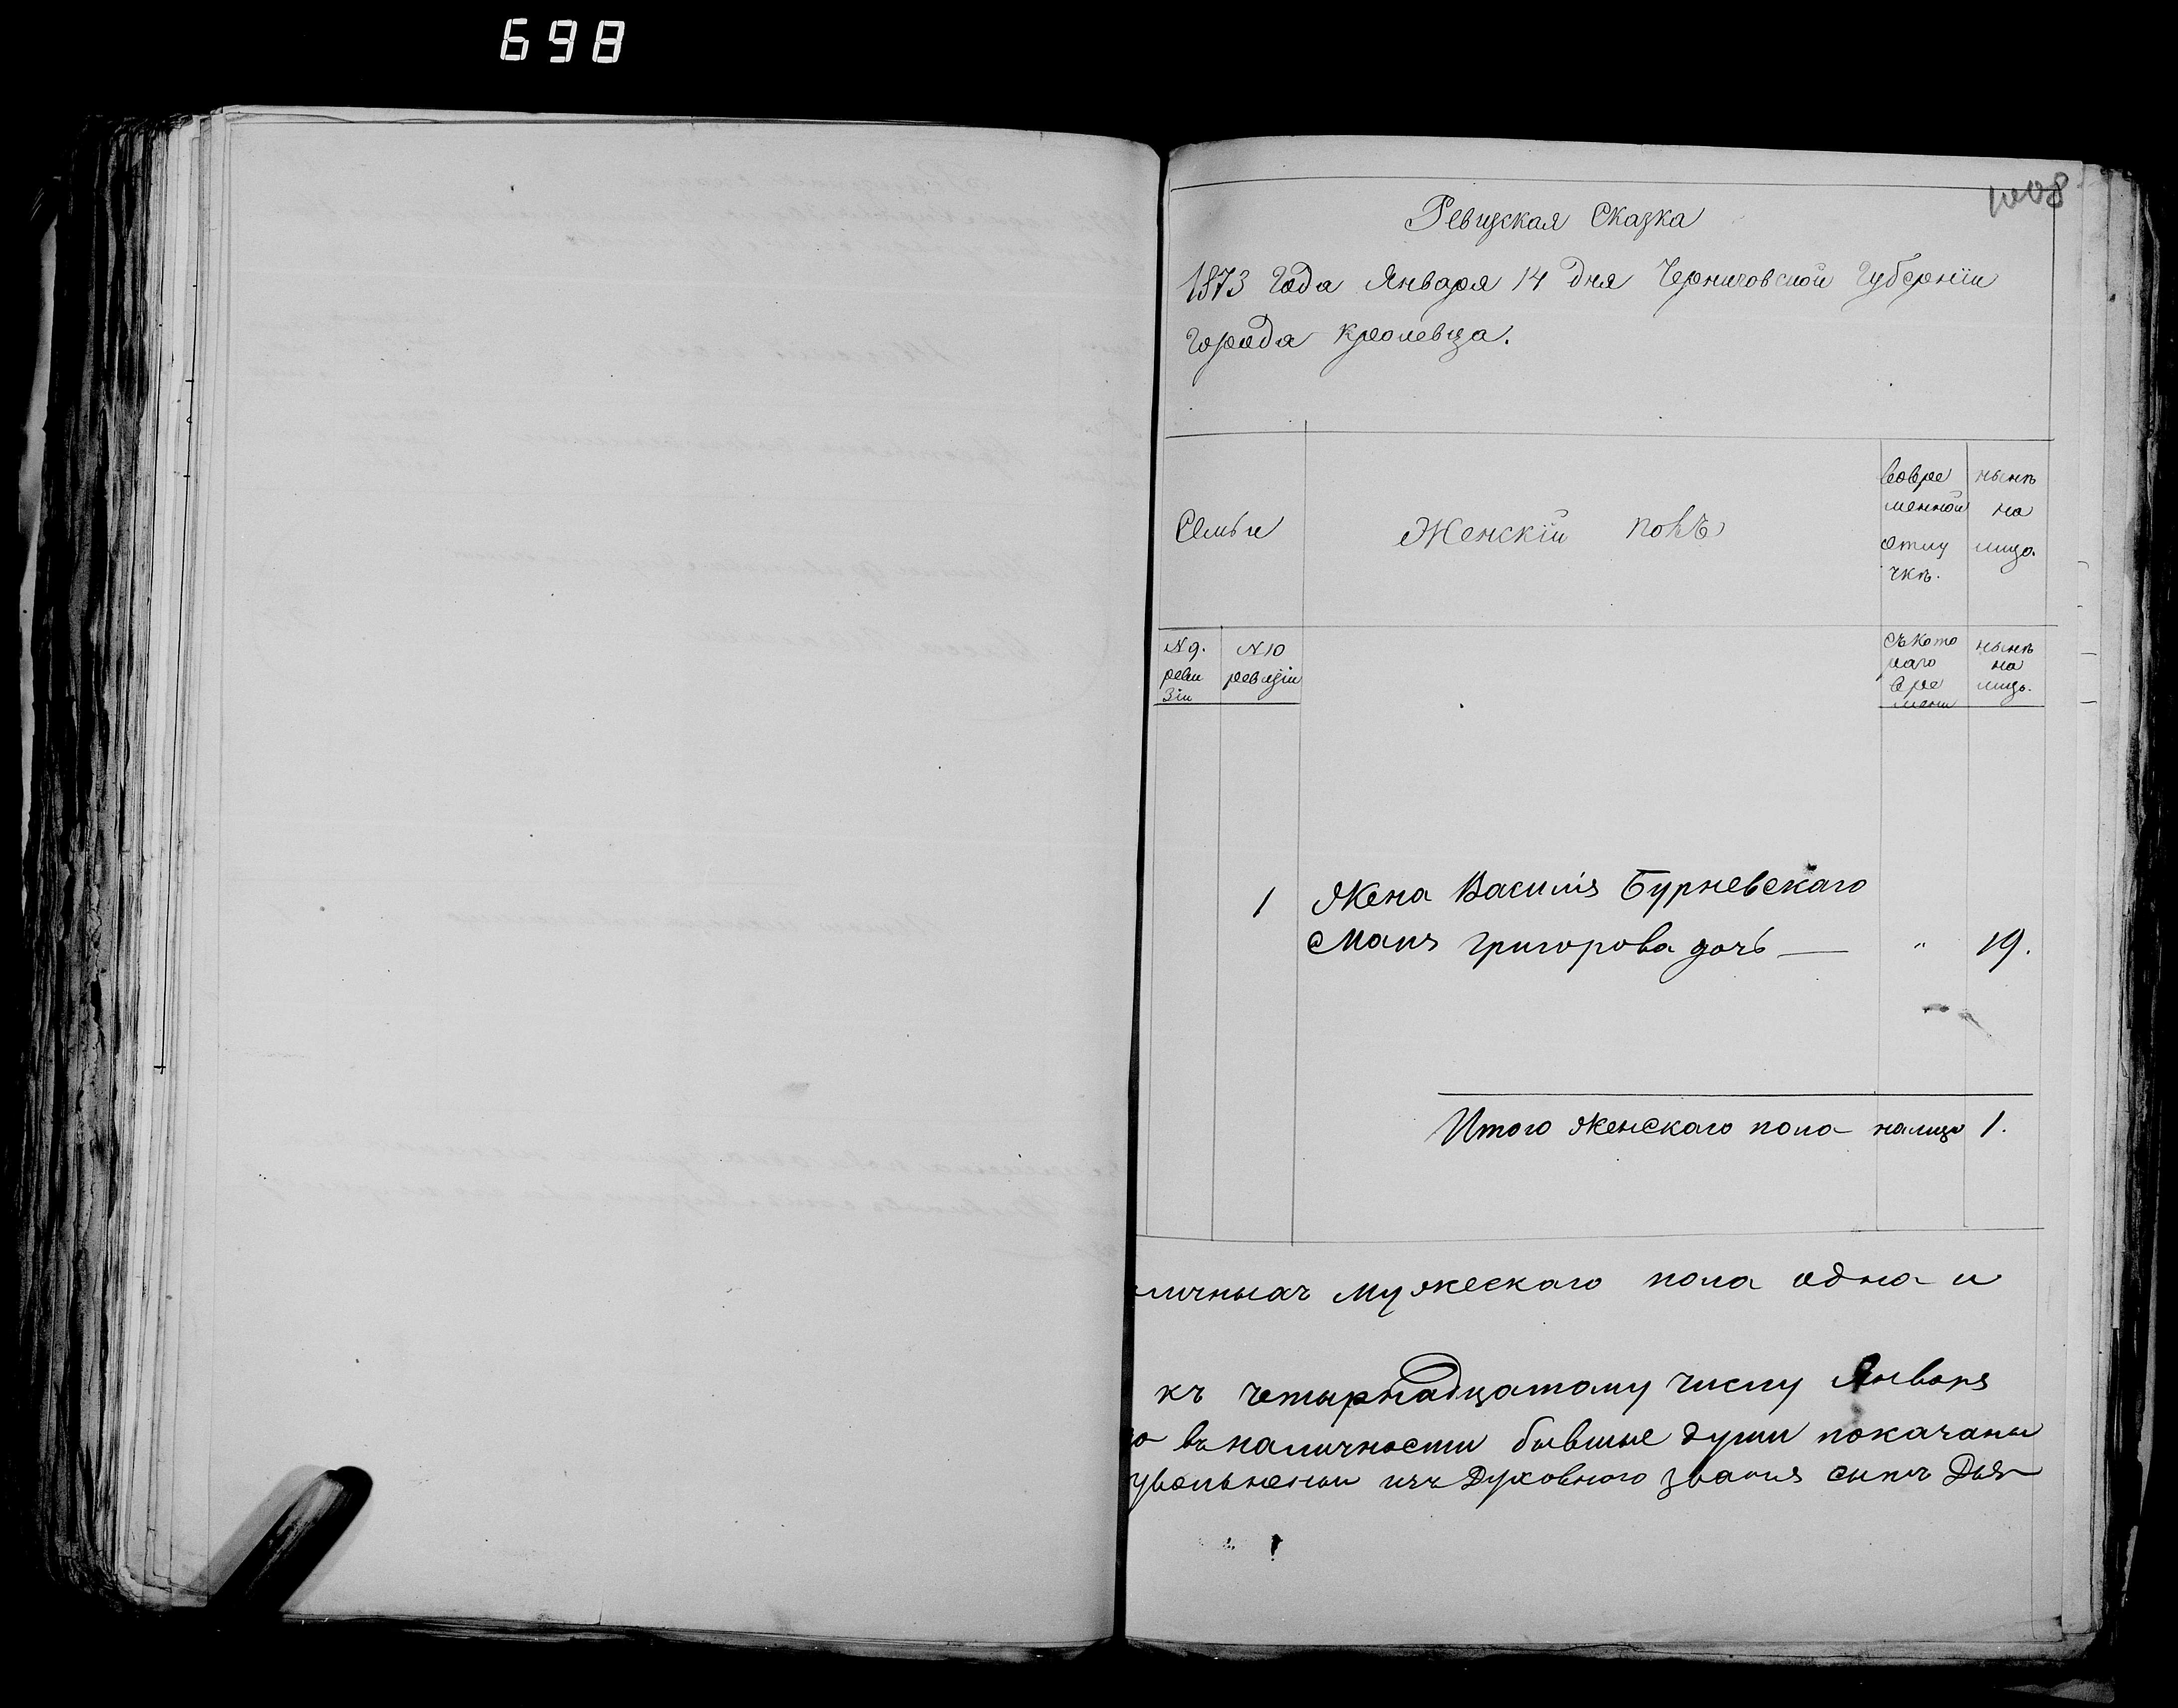 698
1008
Ревизская Сказка
1873 Года Января 14 дня Черниговской Губерніи
Города Кролевца.
Семьи
Женскій полъ
Вовре
менной
отлу
чкѣ.
нынѣ
на
лицо.
N 9.
реви
зіи
N 10
ревизіи
Съ кото
раго
вре
мени
нынѣ
на
лицо.
1 Жена Василія Бурневскаго
Марія Григорова дочь — " 19.
Итого женскаго пола налицо 1.
личныхъ мужескаго пола одна и
къ четырнадцатому числу Января
въ наличности бывшые души показаны
увольненый изъ Духовного званія сынъ Дья